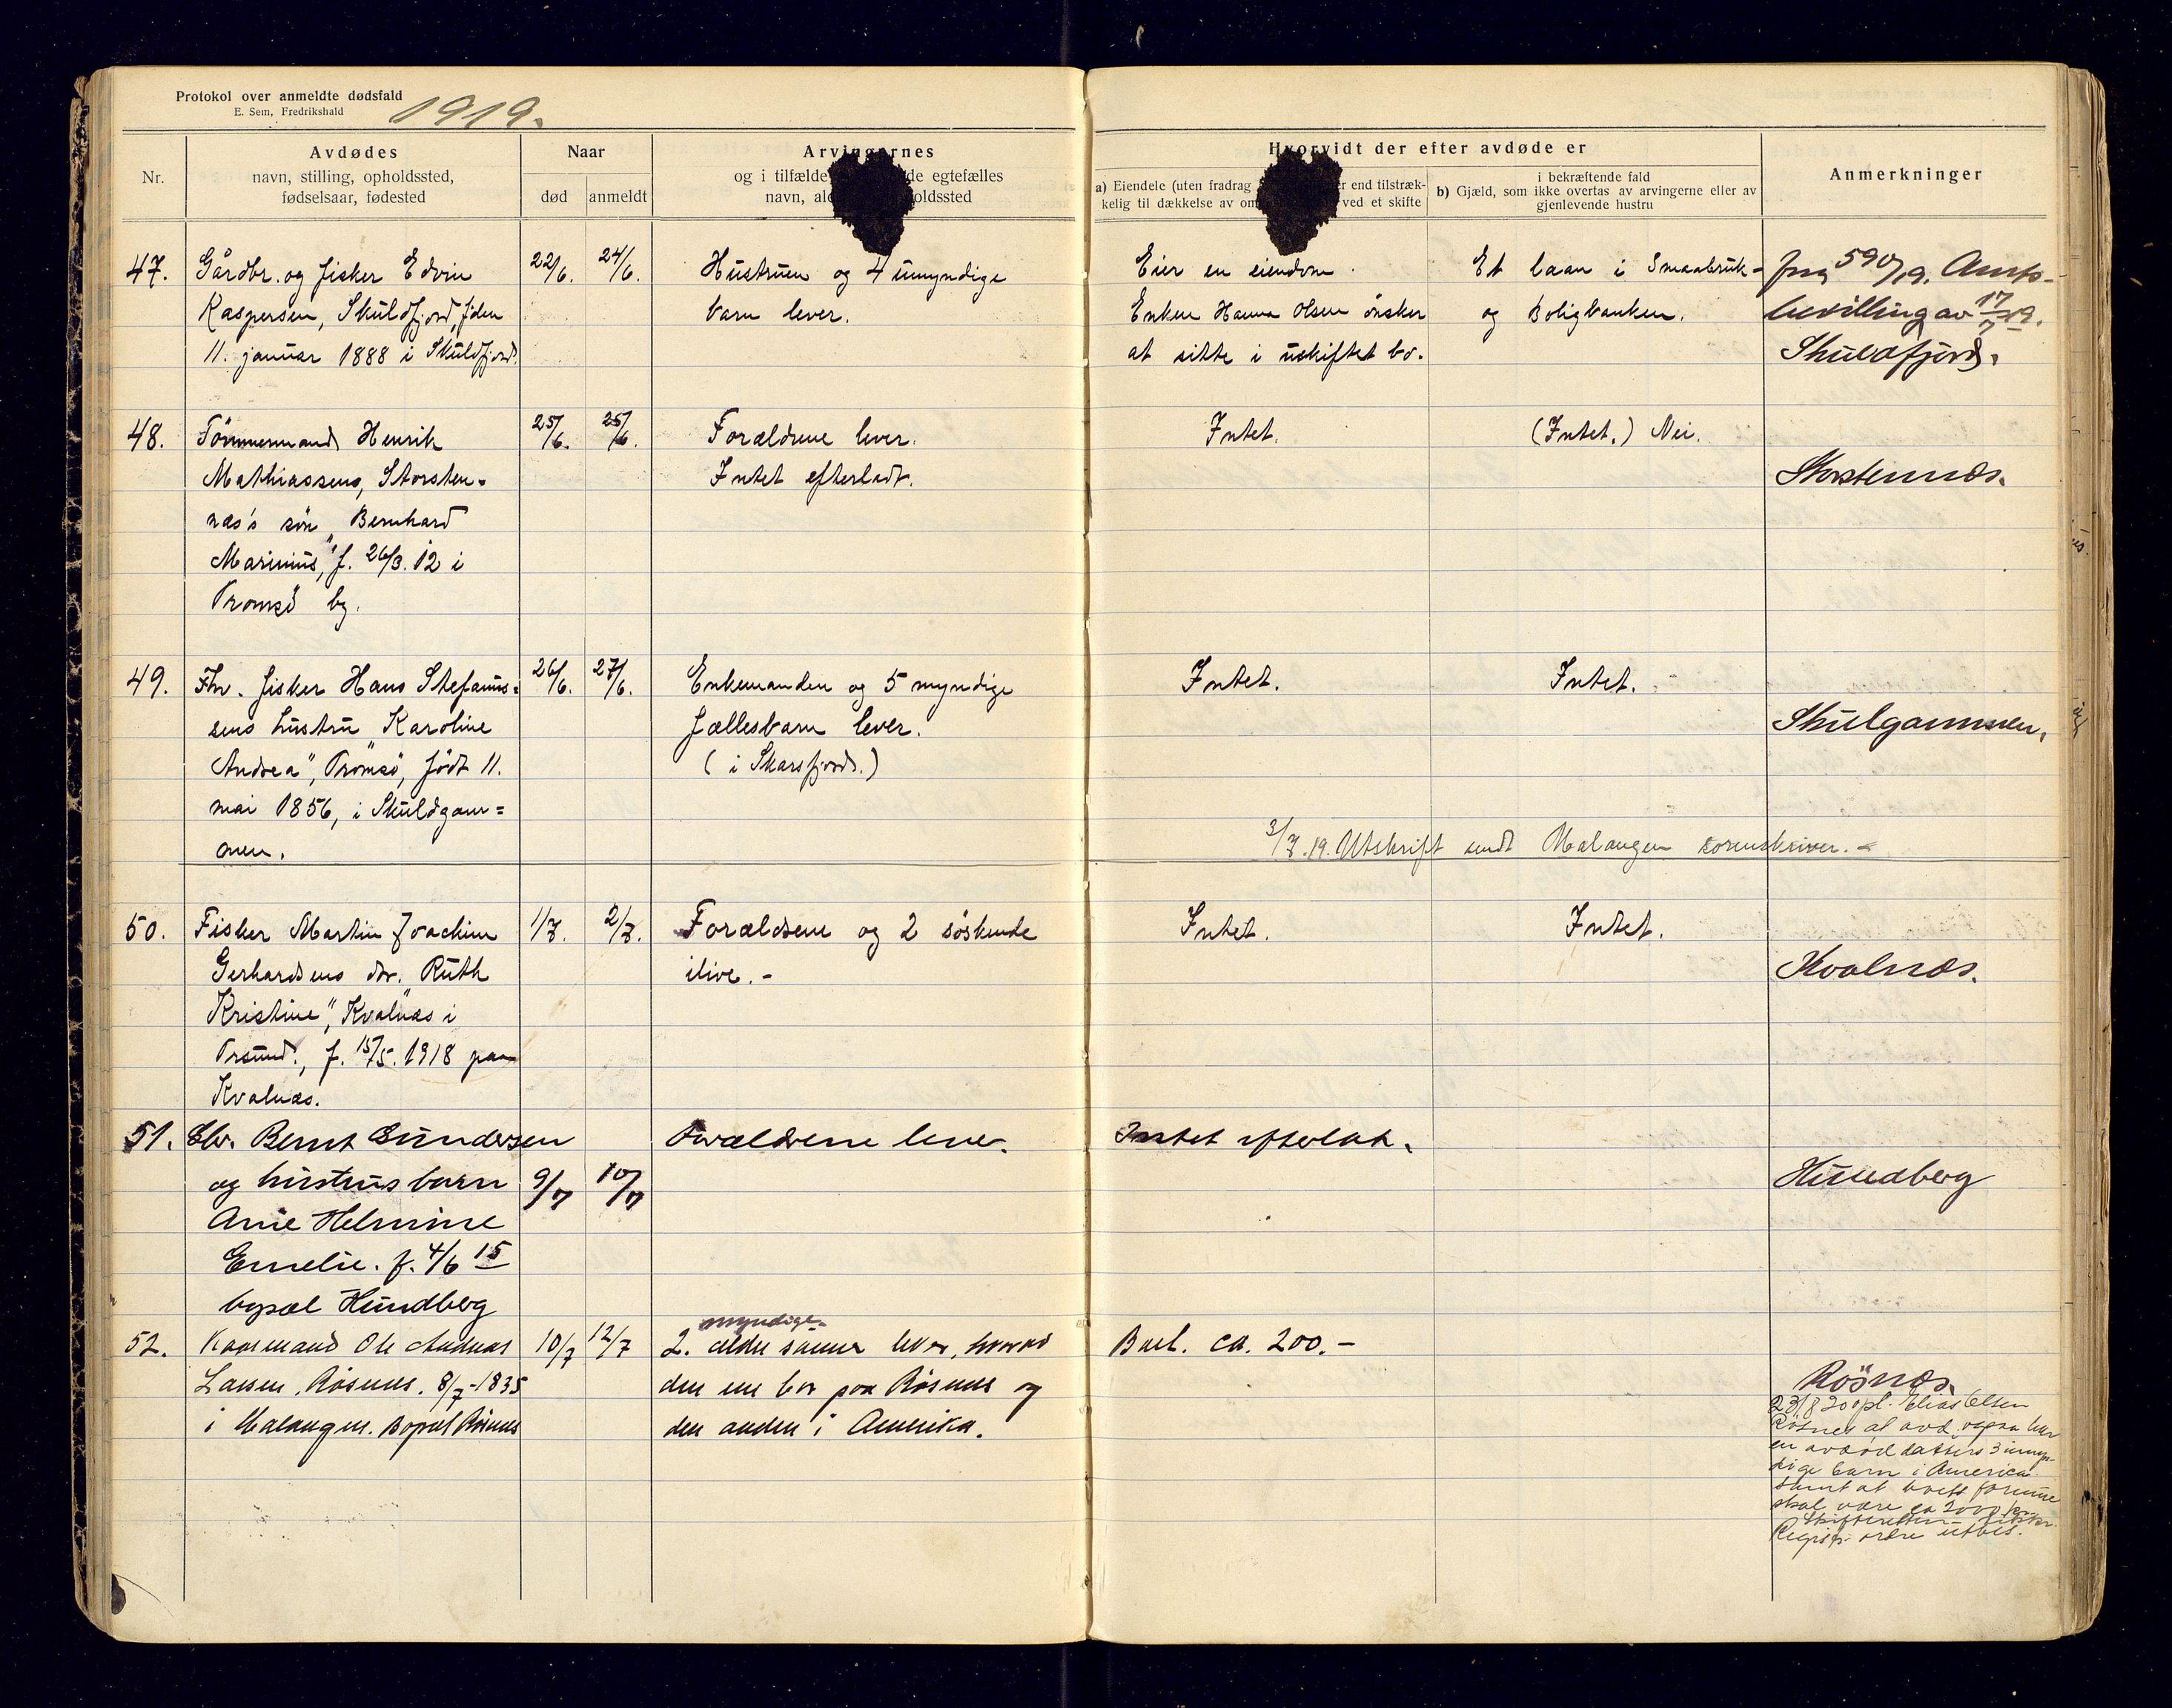 Protokol over anmeldte dødsfald
E. Sem, Fredrikshald
1919.
Nr.
Avdødes
navn, stilling, opholdssted,
fødselsaar, fødested
Naar
død
anmeldt
Arvingernes
og i tilfælde de egtefælles
navn, oldssted
Hvorvidt der efter avdøde er
a) Eiendele (uten fradrag r end tilstræk-
kelig til dækkelse av om ved et skifte
i bekræftende fald
b) Gjæld, som ikke overtas av arvingerne eller av
gjenlevende hustru
Anmerkninger
47.
Gårdbr. og fisker Edvin
Kaspersen, Skuldfjord, f. den
11. januar 1888 i Skuldfjord.
22/6.
24/6.
Hustruen og 4 umyndige
barn lever.
Eier en eiendom.
Enken Hanna Olsen ønsker
at sitte i uskiftet bo.
Et laan i Smaabruk-
og Boligbanken.
590/19. Amts-
bevilling av 17/7 19.
Skuldfjord.
48.
Tömmermand Henrik
Mathiassens, Storsten-
næs's sön "Bernhard
Marinius", f. 26/3. 12 i
Tromsö by.
25/6.
25/6.
Forældrene lever.
Intet efterladt.
Intet.
(Intet.) Nei.
Storstennæs.
49.
Fhv. fisker Hans Stefanus=
sens hustru "Karoline
Andrea", Tromsö, födt 11.
mai 1856, i Skuldgam=
men.
26/6.
27/6.
Enkemanden og 5 myndige
fællesbarn lever.
(i Skarsfjord.)
Intet.
Intet.
Skulgammen.
3/7. 19. Utskrift sendt Malangen sorenskriver.
50.
Fisker Martin Joachim
Gerhardsens dtr. "Ruth
Kristine", Kvalnæs i
Trsund., f. 15/5. 1918 paa
Kvalnæs.
1/7.
2/7.
Forældrene og 2 söskende
ilive.-
Intet.
Intet.
Kvalnæs.
51.
Gbr. Bernt Gundersen
og hustrus barn
Arne Helmine
Emelie. f. 4/6 15
bopæl Hundberg
9/7
10/7
Forældrene lever.
Intet efterlat.
Hundberg
52.
Kaarmand Ole Andreas
Larsen, Røsnes. 8/7-1835
i Malangen. Bopæl Røsnes
10/7
12/7
myndige
2. ældre sønner lever, hvorav
den ene bor paa Røsnes og
den anden i Amerika.
Boet. ca. 200.-
Rösnæs.
23/8 20 opl. Elias Olsen
Røsnes at avd. ogsaa har
en avdød datters 3 umyn-
dige barn i America
samt at boets formue
skal være ca 2000 kr.
ordre utbes.